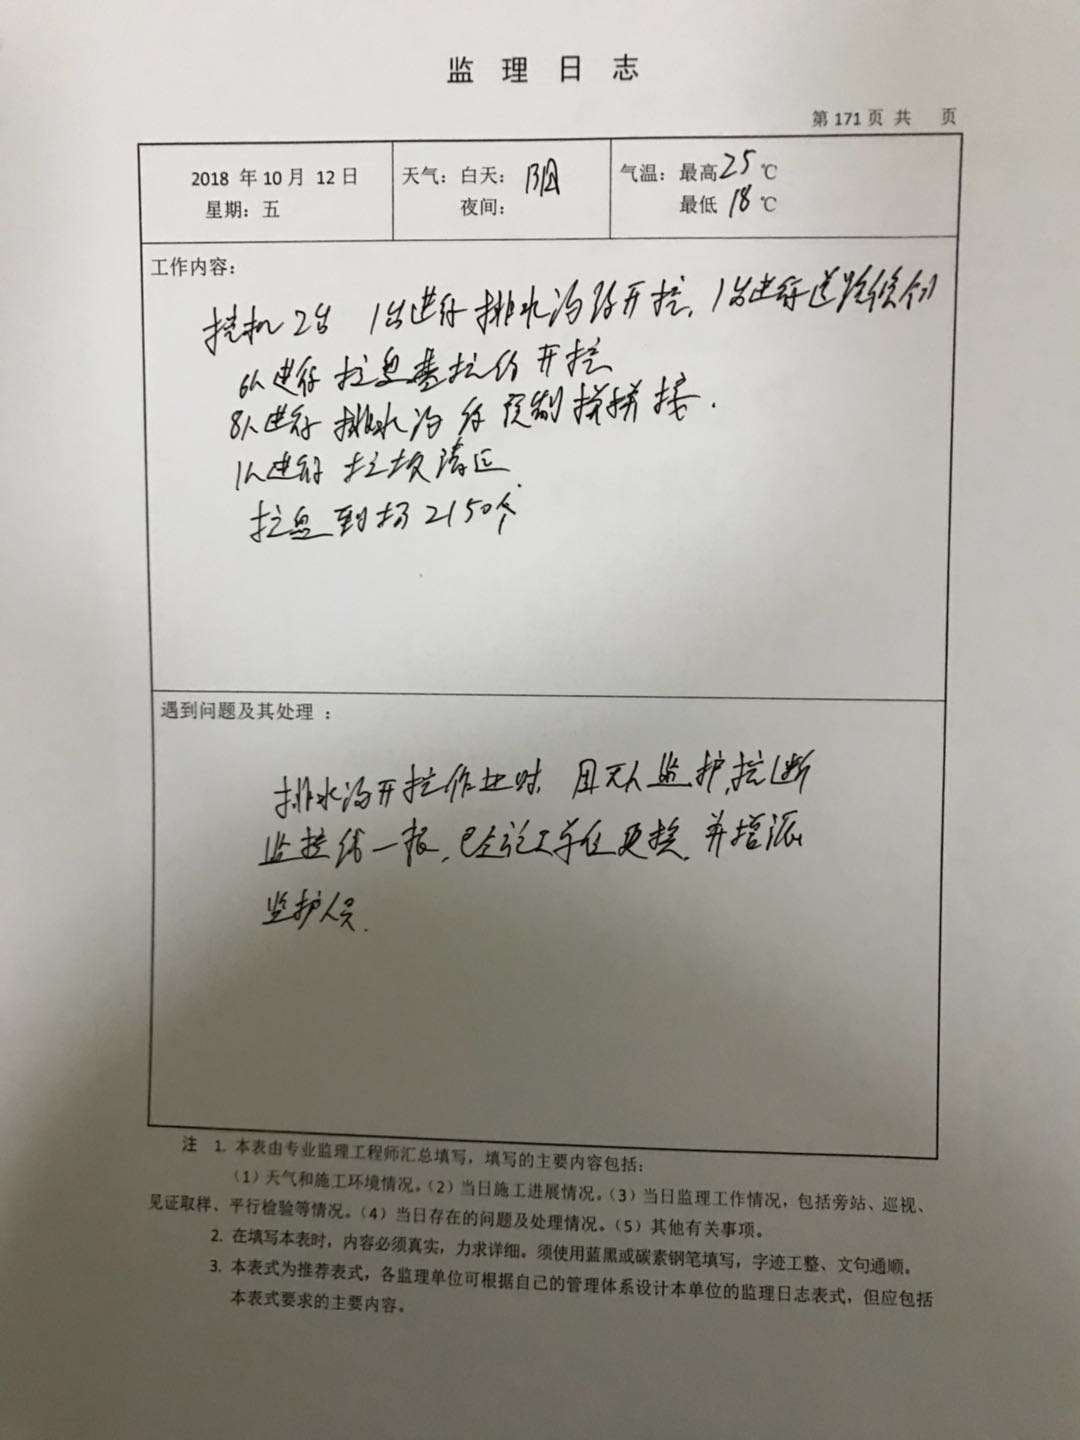 监理日志
第171页 共 页
2018 年10月 12日
星期：五
天气：白天：阴
夜间：
气温：最高25℃
最低18℃
工作内容：
挖机2台 1台进行排水沟开挖，1台进行道路
6人进行拉盘基坑 开挖
8人进行排水沟 预制 拼接.
1人进行
拉盘到场2150个
遇到问题及其处理 ：
排水沟开挖作业时 因无人监护,挖断
监控线一根,已 施工单位更换,并增派
监护人员.
注 1. 本表由专业监理工程师汇总填写，填写的主要内容包括：
（1）天气和施工环境情况。（2）当日施工进展情况。（3）当日监理工作情况，包括旁站、巡视、
见证取样、平行检验等情况。（4）当日存在的问题及处理情况。（5）其他有关事项。
2. 在填写本表时，内容必须真实，力求详细。须使用蓝黑或碳素钢笔填写，字迹工整、文句通顺。
3. 本表式为推荐表式，各监理单位可根据自己的管理体系设计本单位的监理日志表式，但应包括
本表式要求的主要内容。